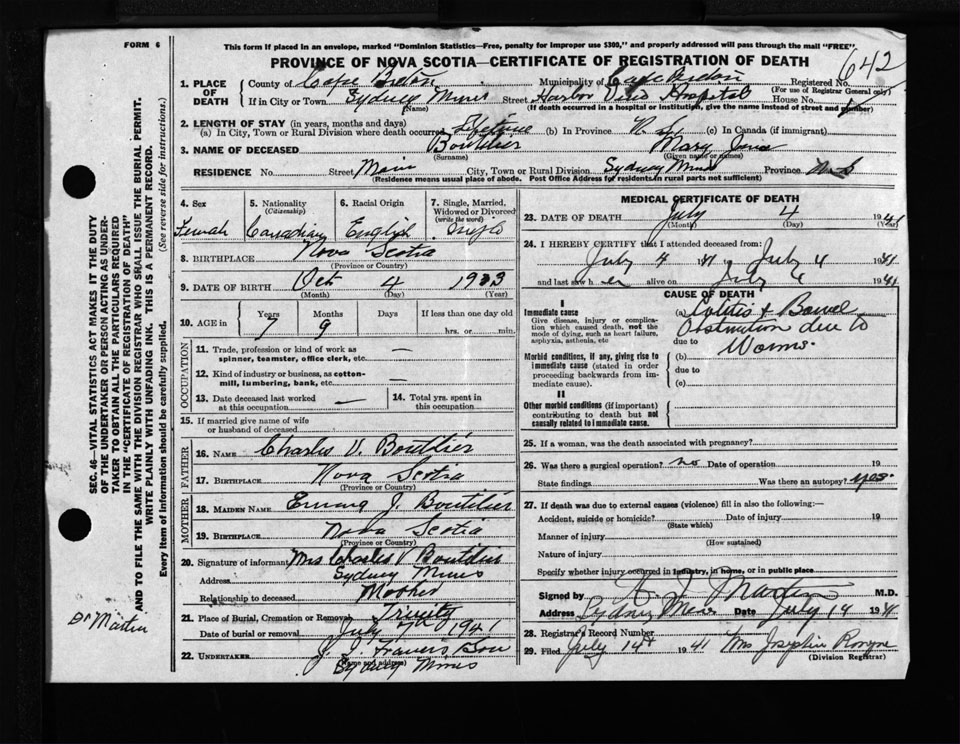 FORM 6
This form if placed in an envelope, marked "Dominion Statistics—Free, penalty for improper use $300," and properly addressed will pass through the mail "FREE"
PROVINCE OF NOVA SCOTIA—CERTIFICATE OF REGISTRATION OF DEATH
642
1. PLACE OF DEATH
County of Cape Breton Municipality of Cape Breton Registered No.
(For use of Registrar General only)
If in City or Town Sydney Mines Street Harbor View Hospital House No.
(Name) (If death occurred in a hospital or institution, give the name instead of street and number)
2. LENGTH OF STAY (in years, months and days)
(a) In City, Town or Rural Division where death occurred Lifetime (b) In Province N. S. (c) In Canada (if immigrant)
3. NAME OF DECEASED Boutilier Mary Jane
(Surname) (Given name or names)
RESIDENCE No. Street Main City, Town or Rural Division Sydney Mines Province N. S
(Residence means usual place of abode. Post Office Address for residents in rural parts not sufficient)
4. Sex
Female
5. Nationality
(Citizenship)
Canadian
6. Racial Origin
English
7. Single, Married, Widowed or Divorced
(write the word)
Single
8. BIRTHPLACE Nova Scotia
(Province or Country)
9. DATE OF BIRTH Oct 4 1933
(Month) (Day) (Year)
10. AGE in Years Months Days If less than one day old
7 9 hrs. or min.
OCCUPATION
11. Trade, profession or kind of work as spinner, teamster, office clerk, etc. —
12. Kind of industry or business, as cotton-mill, lumbering, bank, etc. —
13. Date deceased last worked at this occupation —
14. Total yrs. spent in this occupation
15. If married give name of wife or husband of deceased
FATHER
16. NAME Charles V. Boutilier
17. BIRTHPLACE Nova Scotia
(Province or Country)
MOTHER
18. MAIDEN NAME J. Boutilier
19. BIRTHPLACE Nova Scotia
(Province or Country)
20. Signature of informant Mrs Charles V Boutilier
Address Sydney Mines
Relationship to deceased Mother
21. Place of Burial, Cremation or Removal Trinity
Date of burial or removal July 1941
22. UNDERTAKER J. J. Francis & Son
(Name and address)
Sydney Mines
MEDICAL CERTIFICATE OF DEATH
23. DATE OF DEATH July 4 1941
(Month) (Day) (Year)
24. I HEREBY CERTIFY that I attended deceased from:
July 4 1941 July 4 1941
and last saw her alive on July 4 1941
CAUSE OF DEATH
I
Immediate cause
Give disease, injury or complication which caused death, not the mode of dying, such as heart failure, asphyxia, asthenia, etc
(a) Colitis & Bowel
Obstruction due to
due to
Worms.
Morbid conditions, if any, giving rise to immediate cause (stated in order proceeding backwards from immediate cause).
(b)
due to
(c)
II
Other morbid conditions (if important) contributing to death but not causally related to immediate cause.
25. If a woman, was the death associated with pregnancy?
26. Was there a surgical operation? no Date of operation 19
State findings Was there an autopsy? yes
27. If death was due to external causes (violence) fill in also the following:—
Accident, suicide or homicide? Date of injury 19
(State which)
Manner of injury
(How sustained)
Nature of injury
Specify whether injury occurred in industry, in home, or in public place
Signed by J. Martin M.D.
Address Sydney Mines Date July 14 1941
28. Registrar's Record Number
29. Filed July 14th 1941 Mrs Josephine
(Division Registrar)
SEC. 46—VITAL STATISTICS ACT MAKES IT THE DUTY
OF THE UNDERTAKER OR PERSON ACTING AS UNDER-
TAKER TO OBTAIN ALL THE PARTICULARS REQUIRED
IN THE "CERTIFICATE OF REGISTRATION OF DEATH"
AND TO FILE THE SAME WITH THE DIVISION REGISTRAR WHO SHALL ISSUE THE BURIAL PERMIT.
WRITE PLAINLY WITH UNFADING INK. THIS IS A PERMANENT RECORD.
Every item of information should be carefully supplied. (See reverse side for instructions.)
Dr Martin